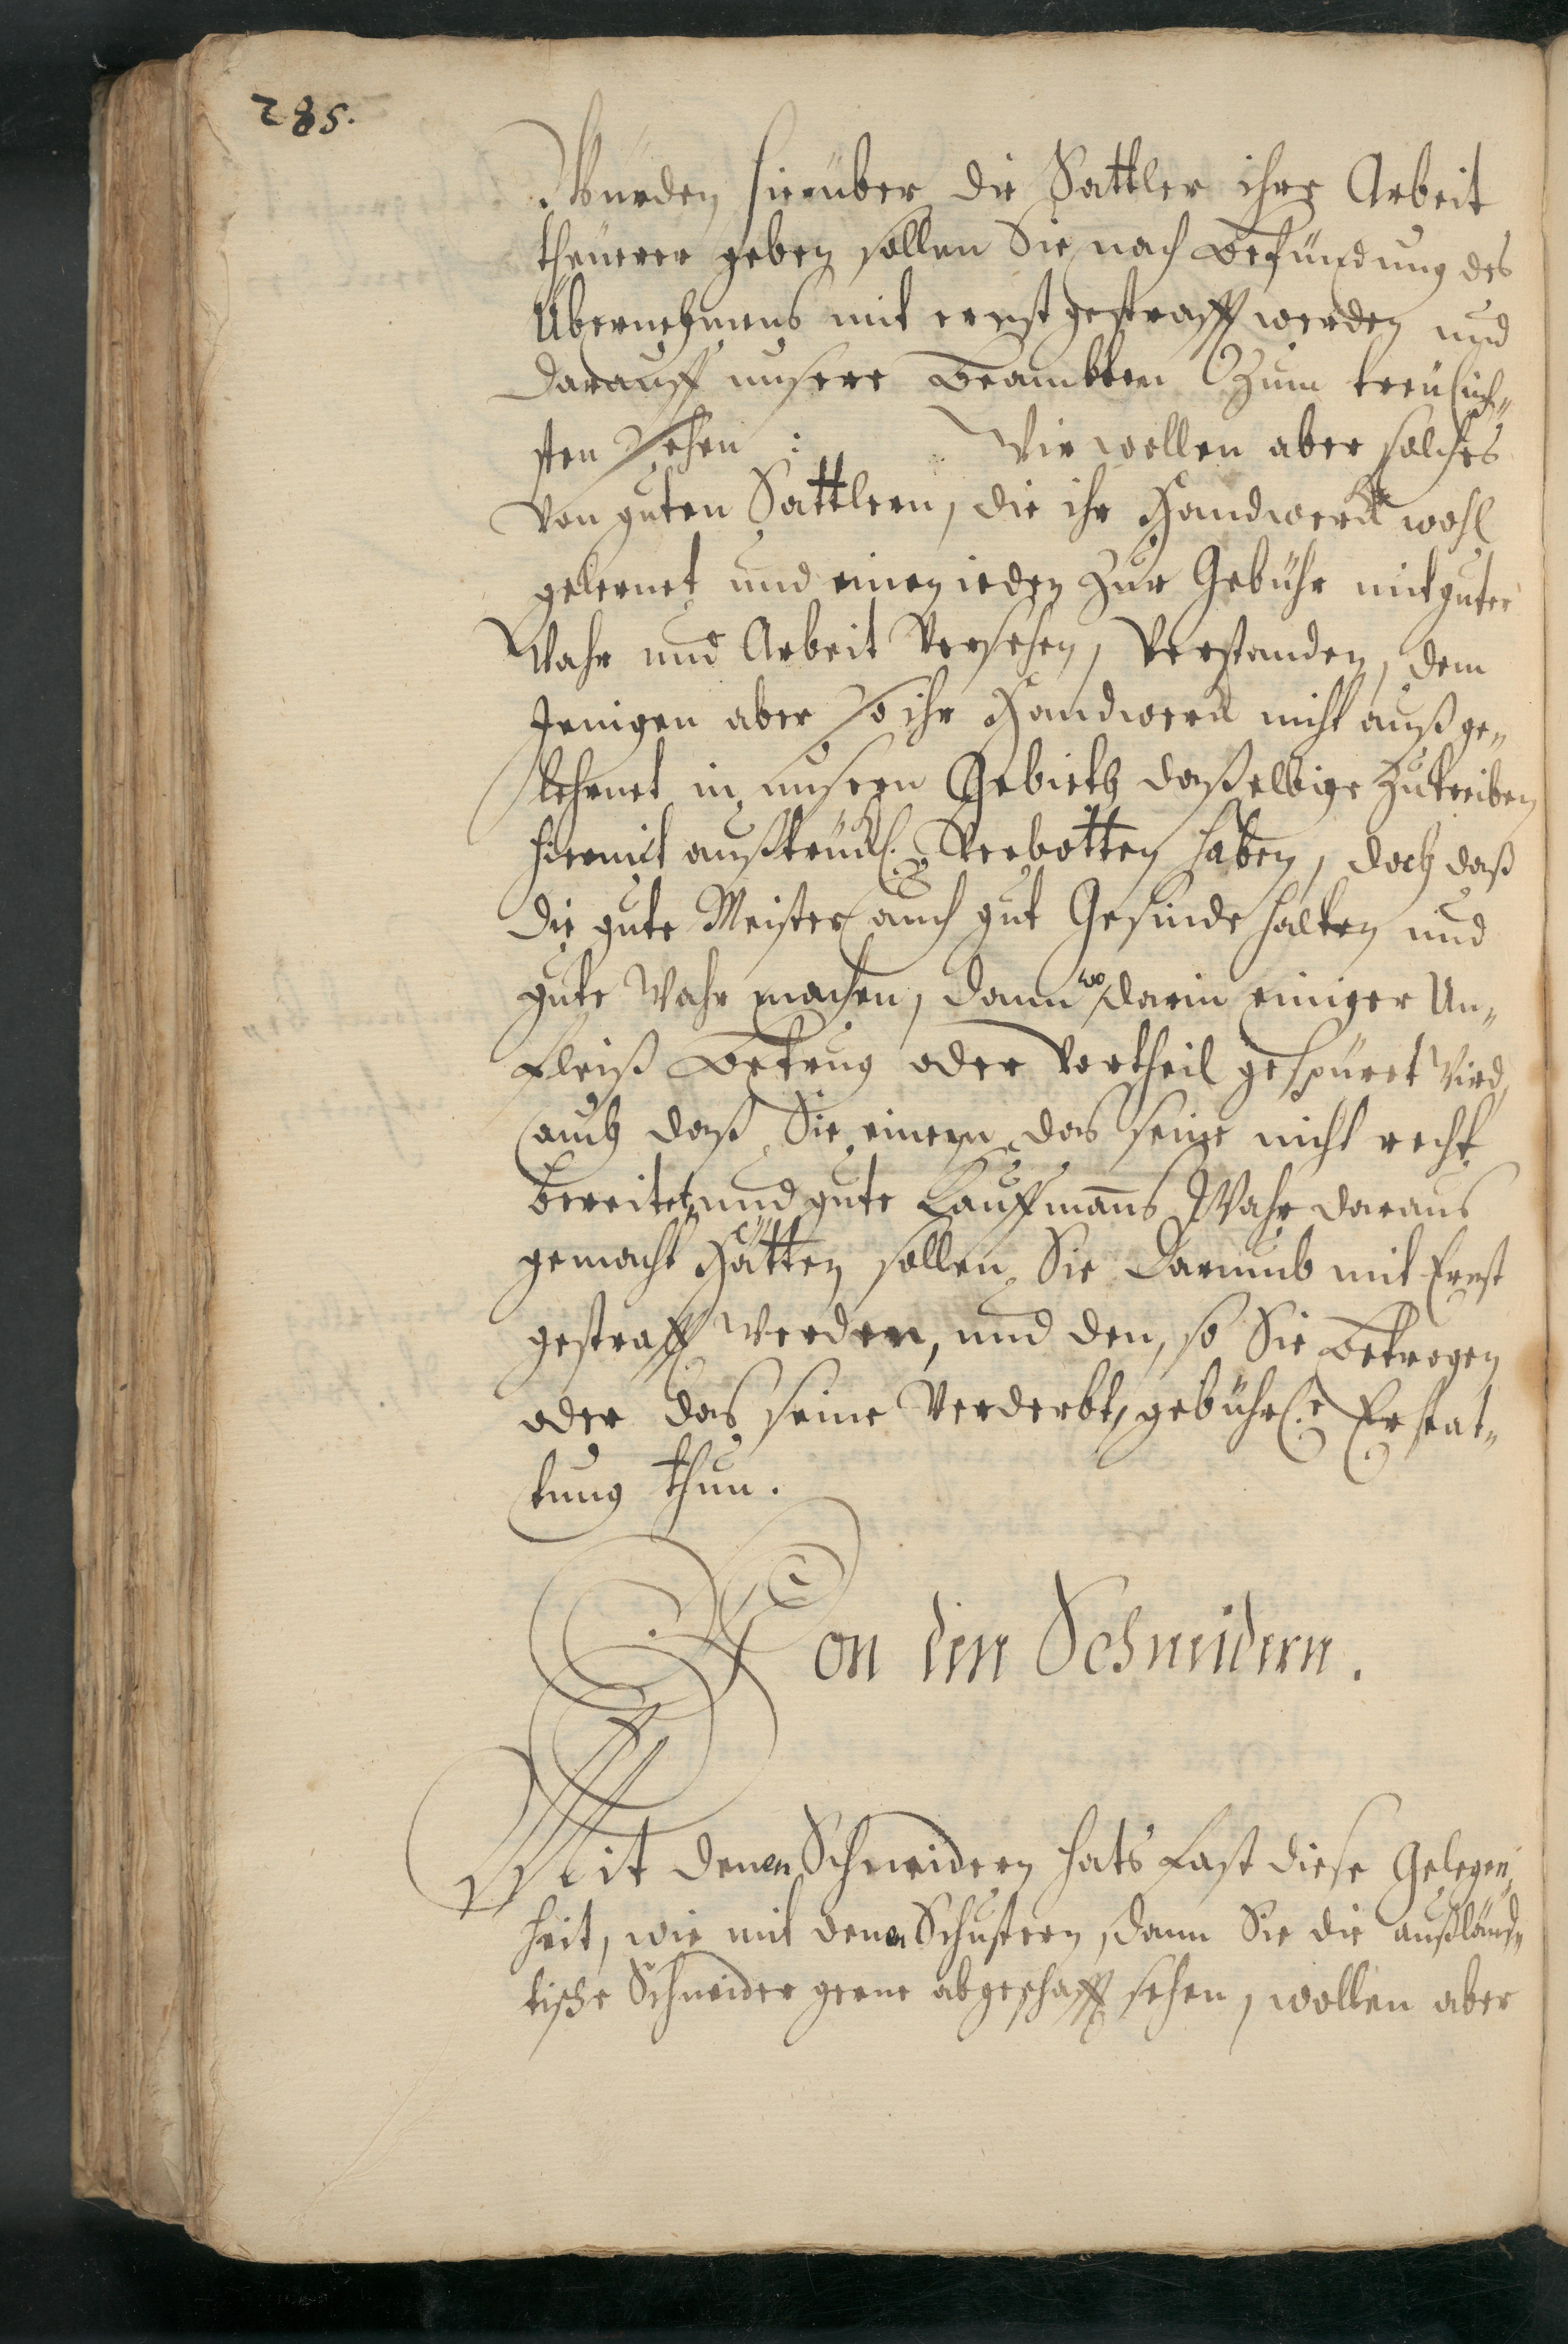 285.
Würden hierüber die Sattler ihre Arbeit
theürer geben sollen Sie nach Befündung des
Übernehmens mit ernst gestrafft werden und
darauff unsere Beambten Zum treülich„
sten sehen : Wir wollen aber solches
von guten Sattlern, die ihr Handwerck wohl
gelernet und einen ieden Zur Gebühr mit guter
Wahr und Arbeit Versehen, Verstanden, dem
Jenigen aber so ihr Handwerck nicht außge„
lehrnet in unsern Gebieth daßelbige Zutreiben
hiermit außtrückl. Verbotten haben, doch daß
die gute Meister auch gut Gesinde halten und
gute Wahr machen, dann wo darin einiger Un„
fleiß Betrug oder Vortheil gespüret Wird,
auch daß Sie einem das seine nicht recht
bereitet, und gute Kauffmanns Wahr daraus
gemacht Hätten sollen Sie darumb mit Ernst
gestrafft werden, und den, so Sie Betrogen
oder das seine Verderbt, gebührl.e Erstat„
tung thun.
Von den Schneidern.
Mit denen Schneidern hats fast diese Gelegen„
heit, wie mit denen Schustern, dann Sie die außländ„
tische Schneider gerne abgeschafft sehen, wollen aber